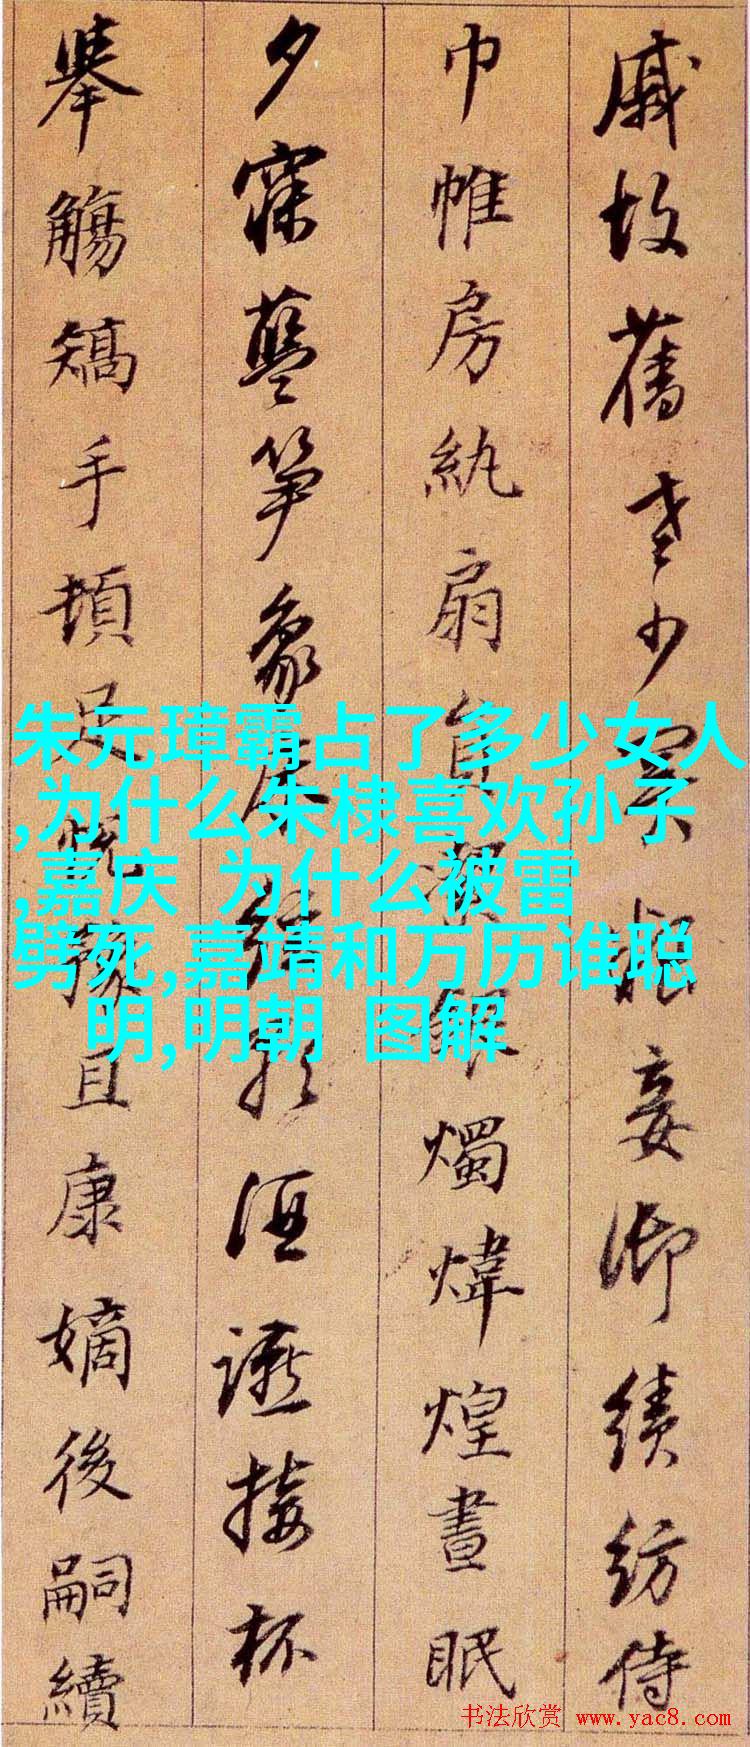 戚故舊老少異粮妾御績紡侍
巾帷房紈扇員潔銀燭煒煌晝眠
夕寐藍笋象床絃歌酒讌接杯
舉觴矯手頓足悅豫且康嫡後嗣續
朱元璋霸占了多少女人
,为什么朱棣喜欢孙子
,嘉庆 为什么被雷
劈死,嘉靖和万历谁聪
明,明朝 图解
书法欣赏 www.yac8.com